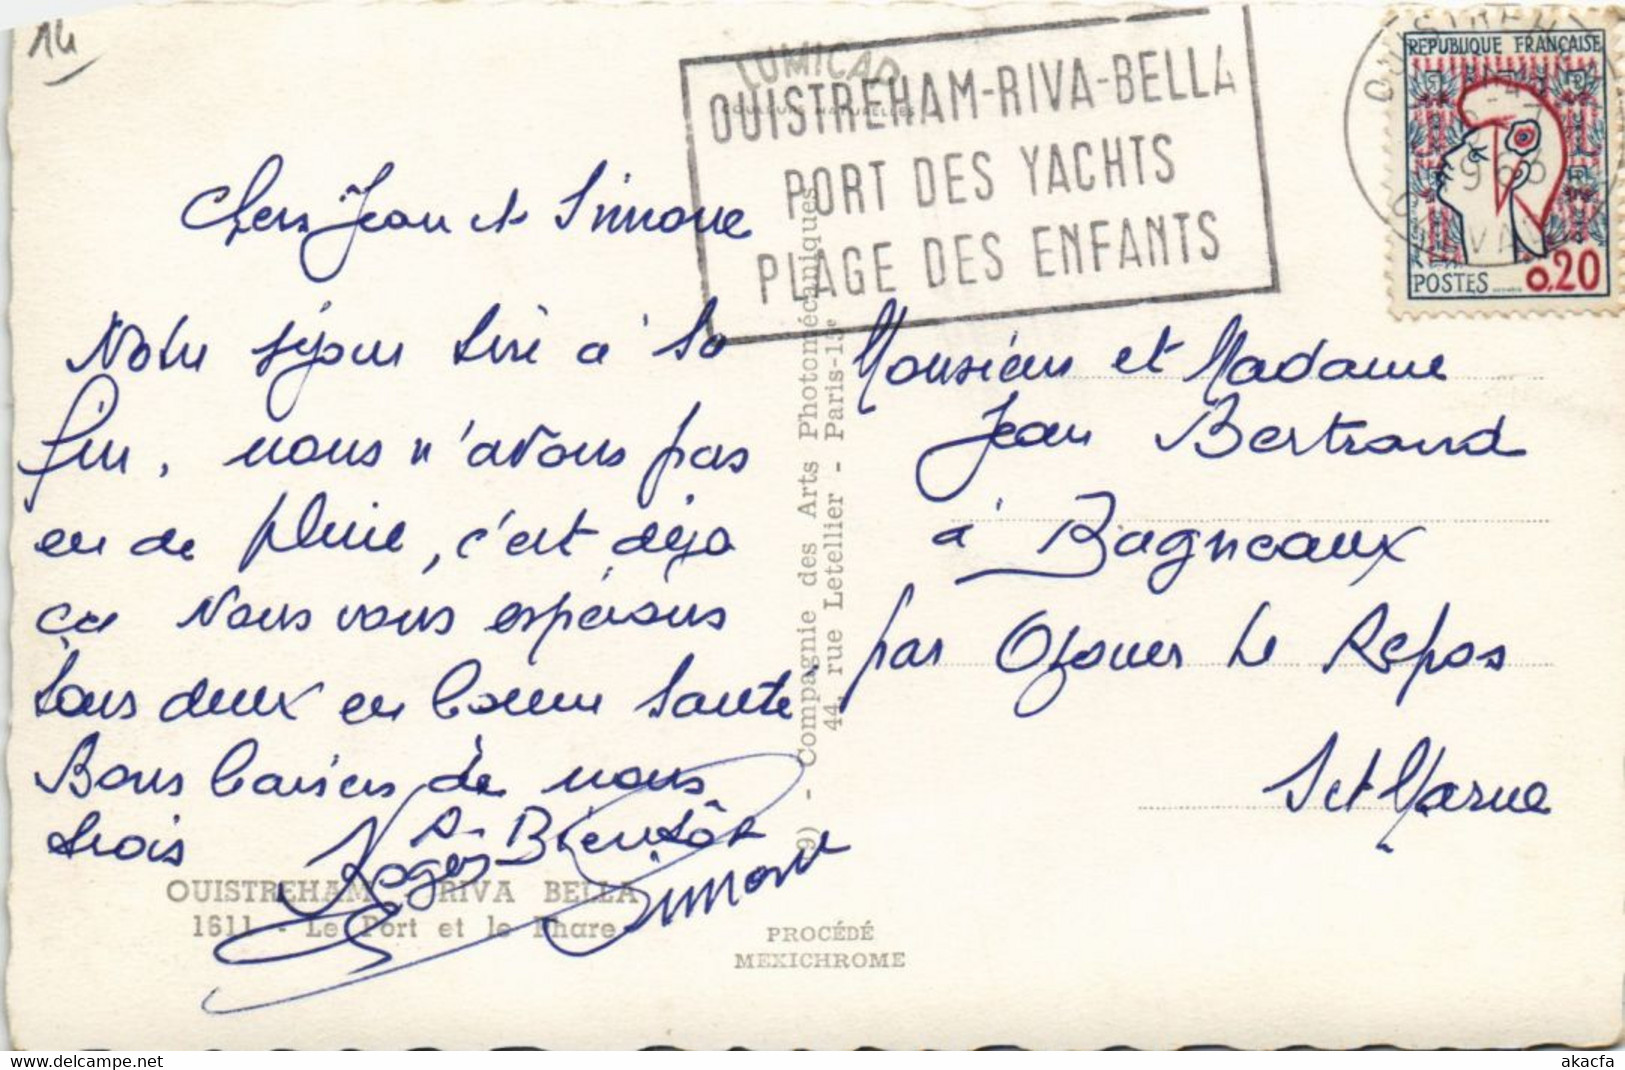 14
LUMICAP
COULEURS NATURELLES
OUISTREHAM-RIVA-BELLA
PORT DES YACHTS
PLAGE DES ENFANTS
OUISTREHAM
1963
CALVADOS
REPUBLIQUE FRANÇAISE
POSTES 0,20
Chers Jean et Simone
Notre séjour tire à sa
fin, nous n'avons pas
eu de pluie, c'est déja
ca Nous vous espérons
tous deux en bonne santé
Bons baisers de nous
trois
A Bientôt
Roger
Simone
Monsieur et Madame
Jean Bertrand
à Bagneaux
par Ozouer le Repos
Set Marne
9) - Compagnie des Arts Photomécaniques
44, rue Letellier - Paris-15e
OUISTREHAM RIVA BELLA
1611 - Le Port et le Phare
PROCÉDÉ
MEXICHROME
delcampe.net
akacfa